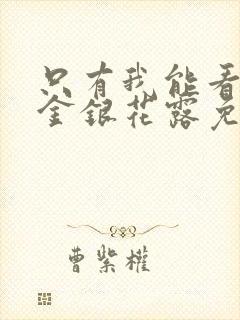 只有我能看
金银花露免
曹紫權